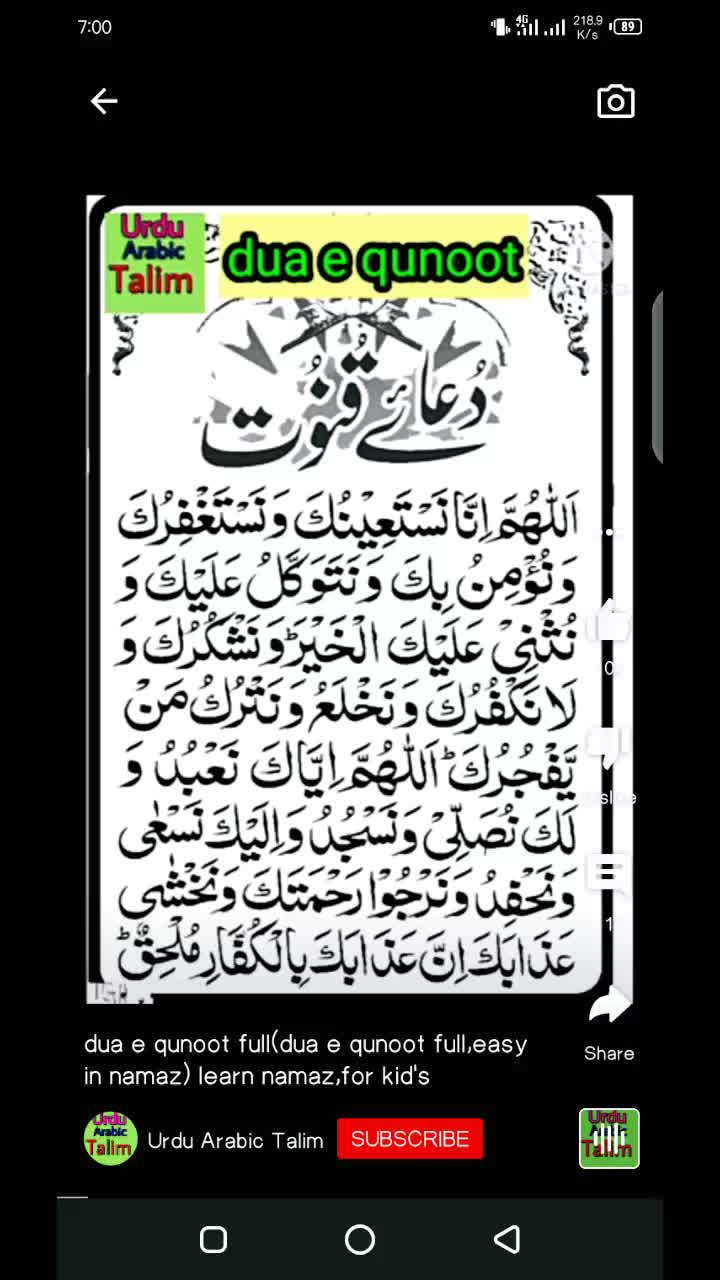 7:00
4G
218.9
K/s
89
Urdu
Arabic
Talim
dua e qunoot
دُعائے قُنُوت
اَللّٰهُمَّ اِنَّا نَسْتَعِيْنُكَ وَنَسْتَغْفِرُكَ
وَنُؤْمِنُ بِكَ وَنَتَوَكَّلُ عَلَيْكَ وَ
نُثْنِيْ عَلَيْكَ الْخَيْرَؕ وَنَشْكُرُكَ وَ
لَا نَكْفُرُكَ وَنَخْلَعُ وَنَتْرُكُ مَنْ
يَّفْجُرُكَؕ اَللّٰهُمَّ اِيَّاكَ نَعْبُدُ وَ
لَكَ نُصَلِّيْ وَنَسْجُدُ وَاِلَيْكَ نَسْعٰى
وَنَحْفِدُ وَنَرْجُوْا رَحْمَتَكَ وَنَخْشٰى
عَذَابَكَ اِنَّ عَذَابَكَ بِالْكُفَّارِ مُلْحِقٌؕ
1
Share
dua e qunoot full(dua e qunoot full,easy
in namaz) learn namaz,for kid's
Urdu
Arabic
Talim
Urdu Arabic Talim
SUBSCRIBE
Urdu
Talim